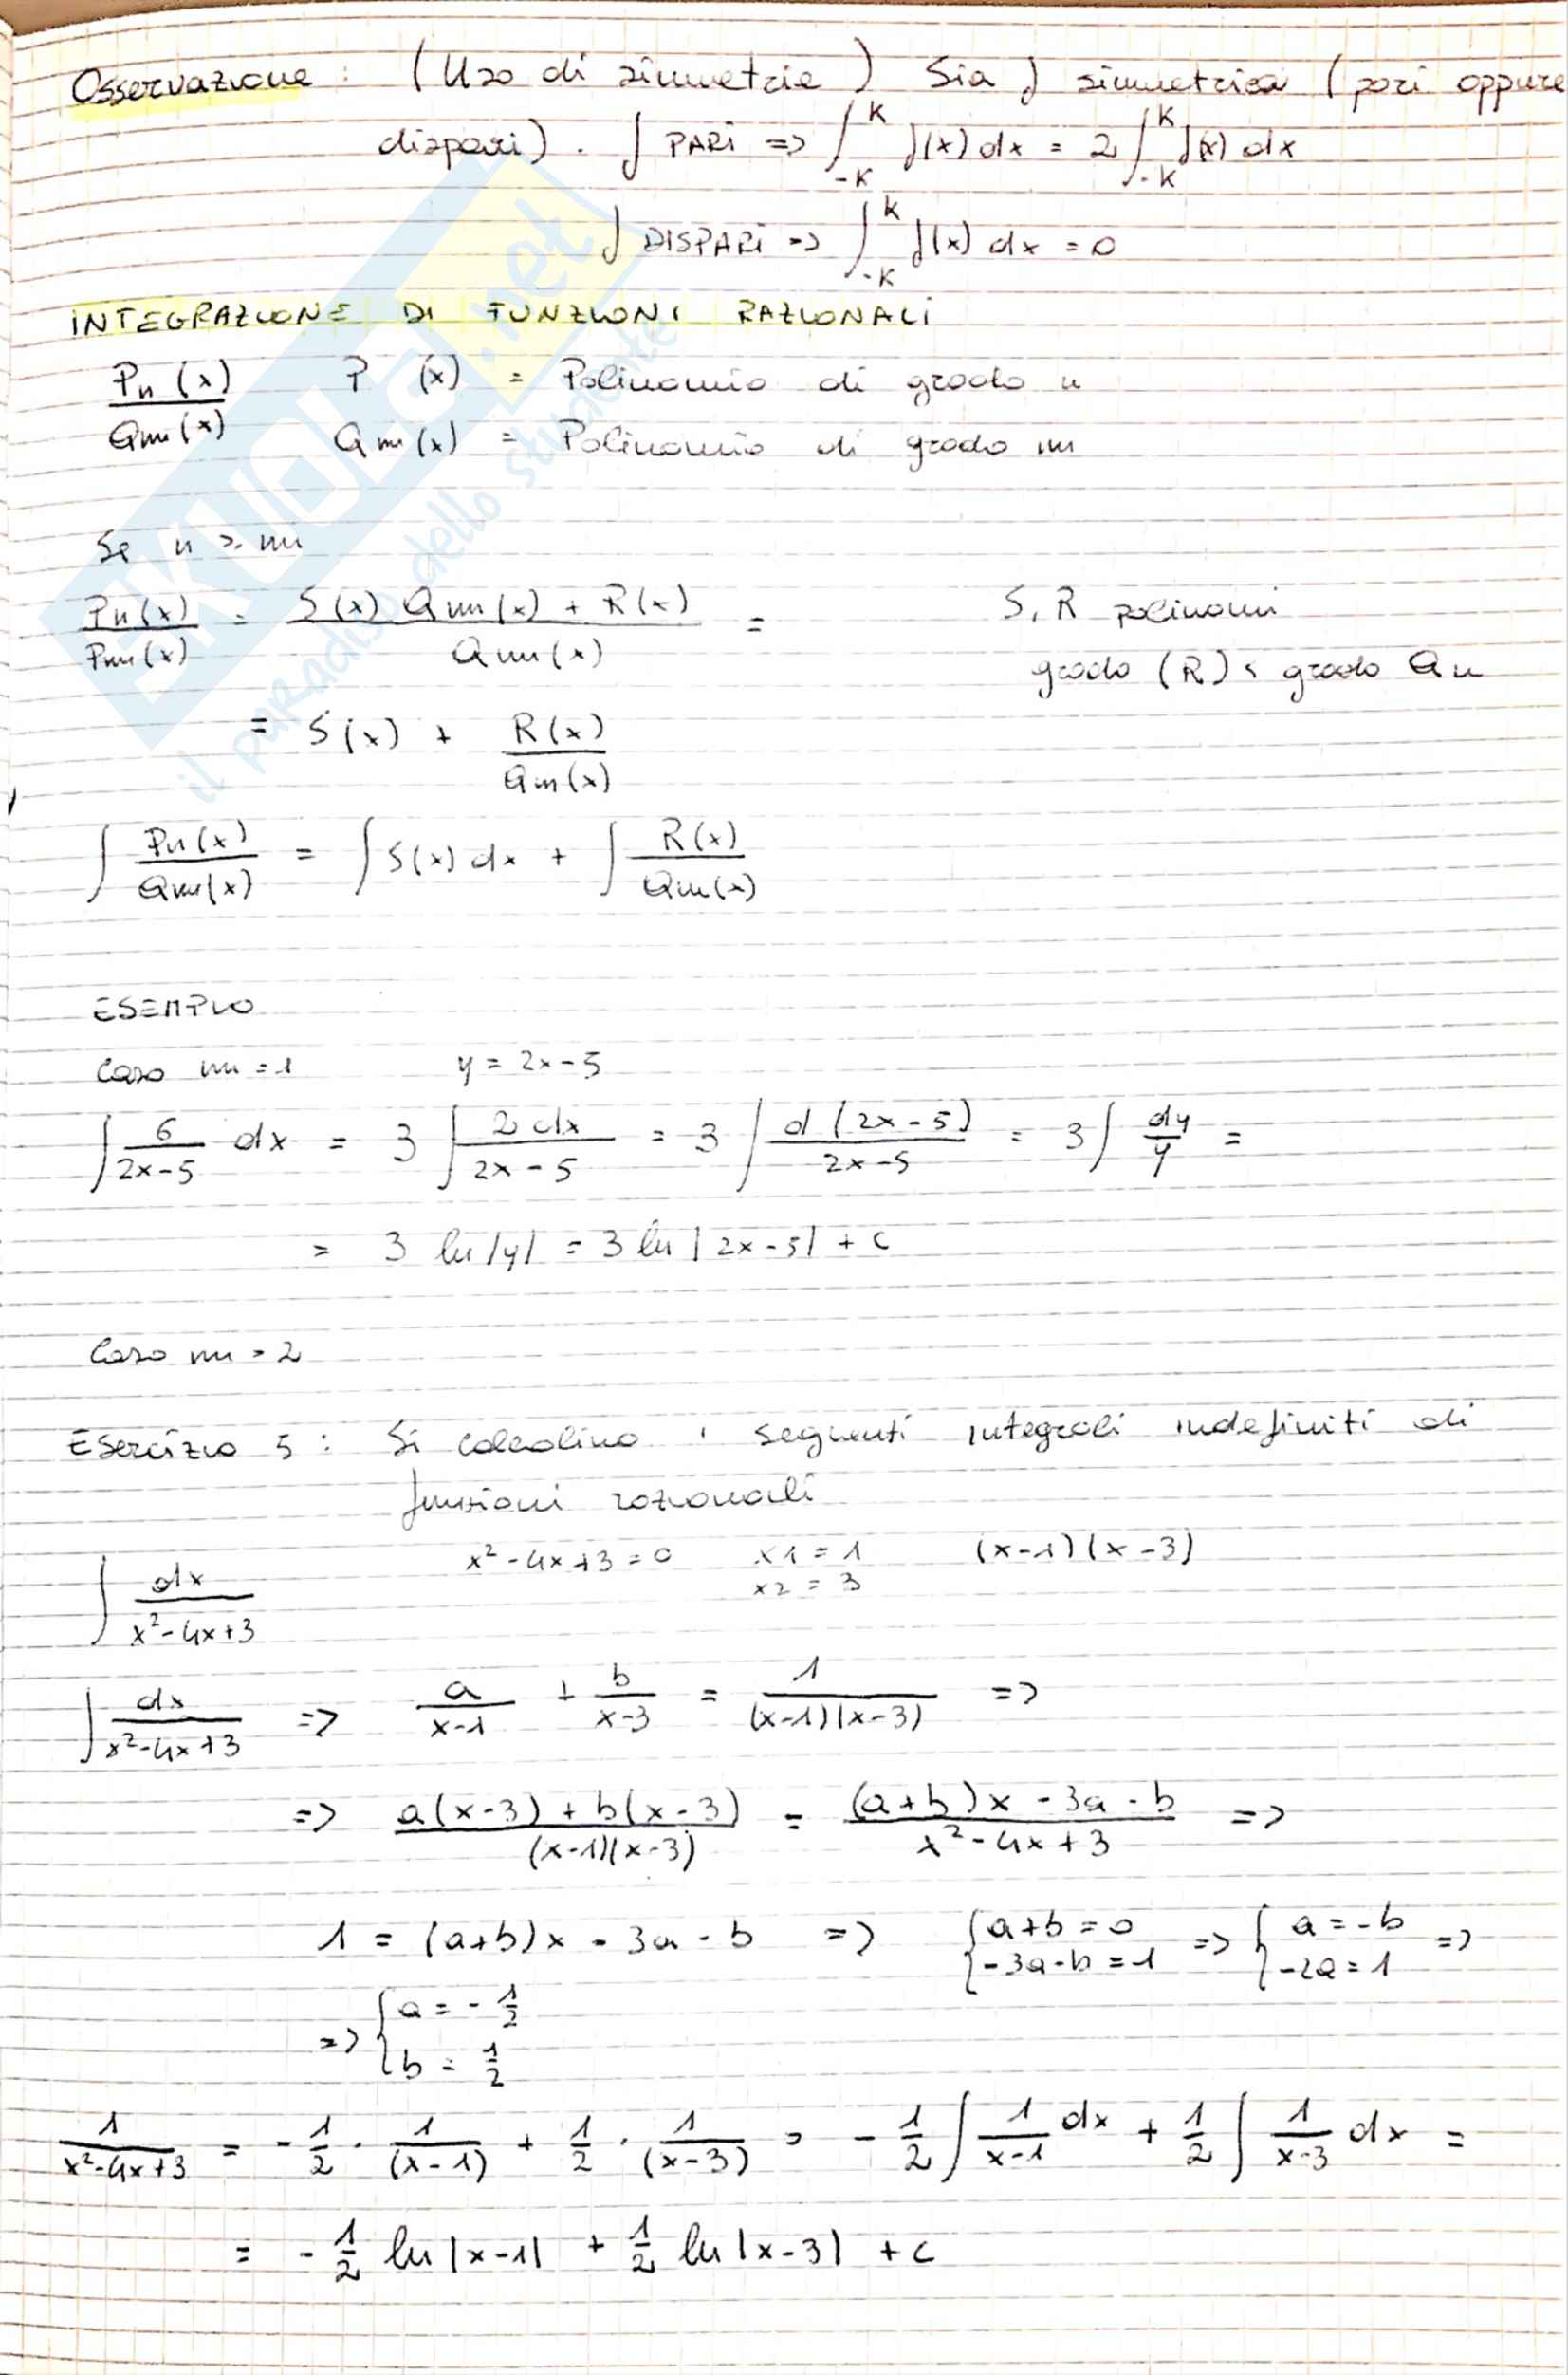 Osservazione: (Uso di simmetrie) Sia f simmetrica (pari oppure
dispari). f PARI => ∫_{-K}^{K} f(x) dx = 2 ∫_{-K}^{K} f(x) dx
f DISPARI => ∫_{-K}^{K} f(x) dx = 0
INTEGRAZIONE DI FUNZIONI RAZIONALI
Pn(x)/Qm(x) P (x) = Polinomio di grado n
Qm(x) = Polinomio di grado m
Se n ≥ m
Pn(x)/Pm(x) = (S(x) Qm(x) + R(x))/Qm(x) = S, R polinomi
grado (R) < grado Qn
= S(x) + R(x)/Qm(x)
∫ Pn(x)/Qm(x) = ∫ S(x) dx + ∫ R(x)/Qm(x)
ESEMPIO
Caso m = 1 y = 2x-5
∫ 6/(2x-5) dx = 3 ∫ 2dx/(2x-5) = 3 ∫ d(2x-5)/(2x-5) = 3 ∫ dy/y =
= 3 ln|y| = 3 ln|2x-5| + c
Caso m = 2
Esercizio 5: Si calcolino i seguenti integrali indefiniti di
funzioni razionali
∫ dx/(x²-4x+3) x²-4x+3=0 x1 = 1 x2 = 3 (x-1)(x-3)
∫ dx/(x²-4x+3) => a/(x-1) + b/(x-3) = 1/((x-1)(x-3)) =>
=> (a(x-3) + b(x-3))/((x-1)(x-3)) = ((a+b)x - 3a - b)/(x²-4x+3) =>
1 = (a+b)x - 3a - b => {a+b=0 {-3a-b=1 => {a=-b {-2a=1 =>
=> {a = -1/2 {b = 1/2
1/(x²-4x+3) = -1/2 · 1/(x-1) + 1/2 · 1/(x-3) = -1/2 ∫ 1/(x-1) dx + 1/2 ∫ 1/(x-3) dx =
= -1/2 ln|x-1| + 1/2 ln|x-3| + c
SKUOLA.net
il paradiso dello studente